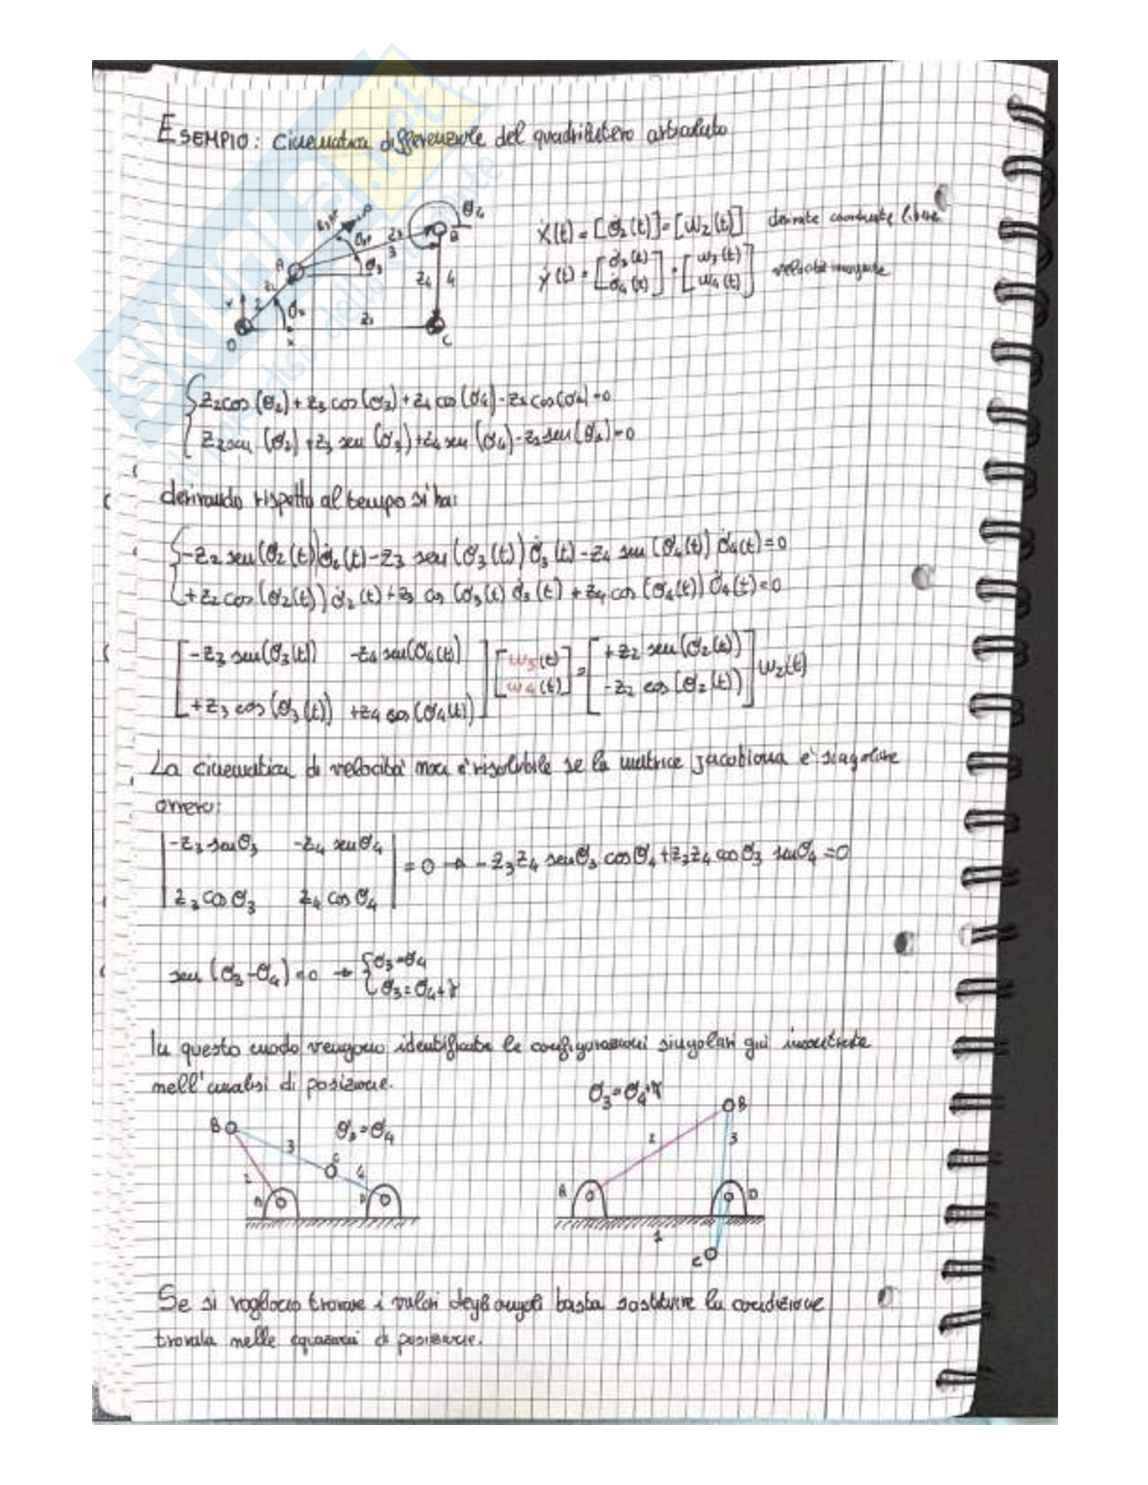 ESEMPIO: cinematica differenziale del quadrilatero articolato
ẋ(t) = [θ̇₂(t)] = [ω₂(t)] derivate coordinate libere
ẏ(t) = [θ̇₃(t) θ̇₄(t)] = [ω₃(t) ω₄(t)] velocità incognite
{ z₂cos(θ₂) + z₃ cos(θ₃) + z₄ cos(θ₄) - z₁ cos(θ₁) = 0
{ z₂ sen(θ₂) + z₃ sen(θ₃) + z₄ sen(θ₄) - z₁ sen(θ₁) = 0
derivando rispetto al tempo si ha:
{ -z₂ sen(θ₂(t)) θ̇₂(t) - z₃ sen(θ₃(t)) θ̇₃(t) - z₄ sen(θ₄(t)) θ̇₄(t) = 0
{ +z₂ cos(θ₂(t)) θ̇₂(t) + z₃ cos(θ₃(t) θ̇₃(t) + z₄ cos(θ₄(t)) θ̇₄(t) = 0
[ -z₃ sen(θ₃(t)) -z₄ sen(θ₄(t)) ] [ ω₃(t) ] = [ +z₂ sen(θ₂(t)) ] ω₂(t)
[ +z₃ cos(θ₃(t)) +z₄ cos(θ₄(t)) ] [ ω₄(t) ] [ -z₂ cos(θ₂(t)) ]
La cinematica di velocità non è risolvibile se la matrice jacobiana è singolare
ovvero:
| -z₃ senθ₃ -z₄ senθ₄ | = 0 → - z₃z₄ senθ₃ cosθ₄ + z₃z₄ cosθ₃ senθ₄ = 0
| z₃ cosθ₃ z₄ cosθ₄ |
sen(θ₃-θ₄) = 0 → { θ₃=θ₄
{ θ₃=θ₄+π
In questo modo vengono identificate le configurazioni singolari già incontrate
nell'analisi di posizione.
θ₃=θ₄
θ₃=θ₄+π
B 3 C 4 A D
B 2 3 A D 1 C
Se si vogliono trovare i valori degli angoli basta sostituire la condizione
trovata nelle equazioni di posizione.